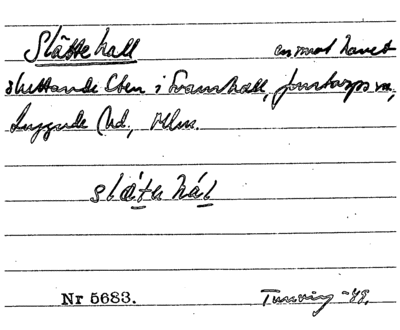 Slättehall en mot havet
sluttande sten i Svanshall, Jonstorps sn,
Luggude hd, Mlm.
slä́te hál
Nr 5683. Tuneving -48.